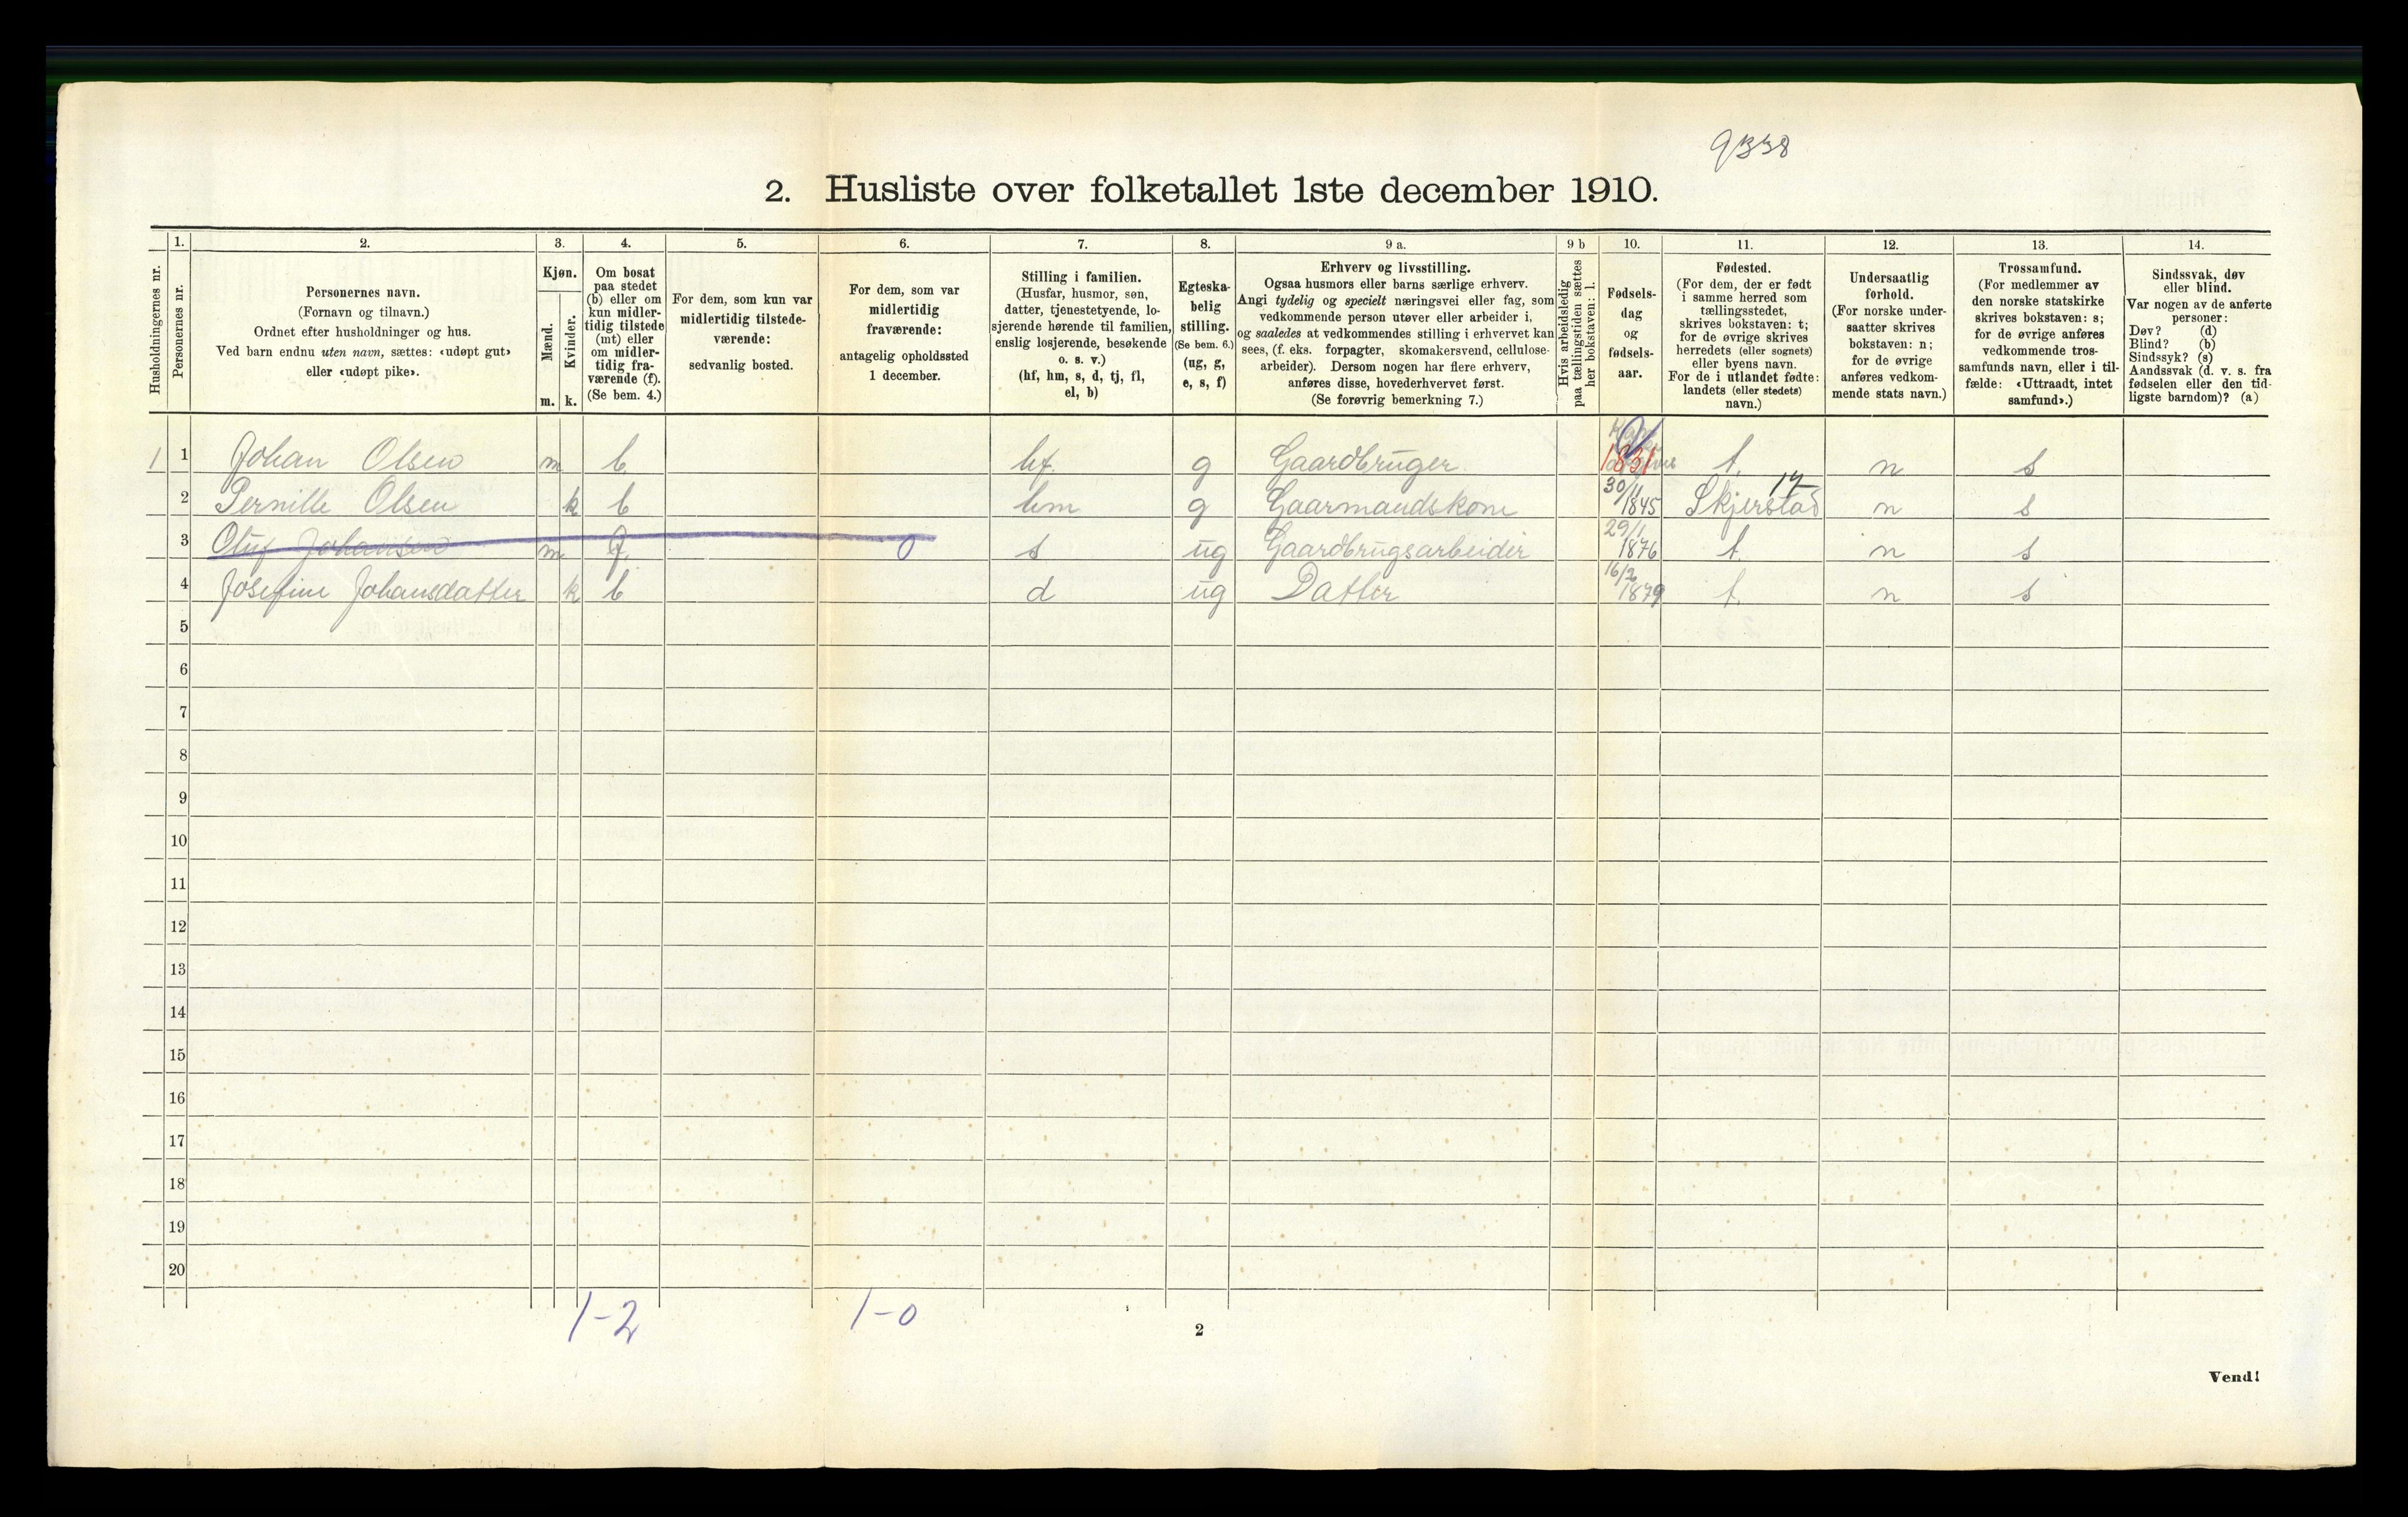 9338
2. Husliste over folketallet 1ste december 1910.
Husholdningernes nr.
1.
Personernes nr.
2.
Personernes navn.
(Fornavn og tilnavn.)
Ordnet efter husholdninger og hus.
Ved barn endnu uten navn, sættes: «udøpt gut»
eller «udøpt pike».
3.
Kjøn.
Mænd.
Kvinder.
m. k.
4.
Om bosat
paa stedet
(b) eller om
kun midler-
tidig tilstede
(mt) eller
om midler-
tidig fra-
værende (f).
(Se bem. 4.)
5.
For dem, som kun var
midlertidig tilstede-
værende:
sedvanlig bosted.
6.
For dem, som var
midlertidig
fraværende:
antagelig opholdssted
1 december.
7.
Stilling i familien.
(Husfar, husmor, søn,
datter, tjenestetyende, lo-
sjerende hørende til familien,
enslig losjerende, besøkende
o. s. v.)
(hf, hm, s, d, tj, fl,
el, b)
8.
Egteska-
belig
stilling.
(Se bem. 6.)
(ug, g,
e, s, f)
9 a.
Erhverv og livsstilling.
Ogsaa husmors eller barns særlige erhverv.
Angi tydelig og specielt næringsvei eller fag, som
vedkommende person utøver eller arbeider i,
og saaledes at vedkommendes stilling i erhvervet kan
sees, (f. eks. forpagter, skomakersvend, cellulose-
arbeider). Dersom nogen har flere erhverv,
anføres disse, hovederhvervet først.
(Se forøvrig bemerkning 7.)
9 b
Hvis arbeidsledig
paa tællingstiden sættes
her bokstaven: l.
10.
Fødsels-
dag
og
fødsels-
aar.
11.
Fødested.
(For dem, der er født
i samme herred som
tællingsstedet,
skrives bokstaven: t;
for de øvrige skrives
herredets (eller sognets)
eller byens navn.
For de i utlandet fødte:
landets (eller stedets)
navn.)
12.
Undersaatlig
forhold.
(For norske under-
saatter skrives
bokstaven: n;
for de øvrige
anføres vedkom-
mende stats navn.)
13.
Trossamfund.
(For medlemmer av
den norske statskirke
skrives bokstaven: s;
for de øvrige anføres
vedkommende tros-
samfunds navn, eller i til-
fælde: «Uttraadt, intet
samfund».)
14.
Sindssvak, døv
eller blind.
Var nogen av de anførte
personer:
Døv? (d)
Blind? (b)
Sindssyk? (s)
Aandssvak (d. v. s. fra
fødselen eller den tid-
ligste barndom)? (a)
1 1 Johan Olsen m b hf. g Gaardbruger 1831 t. n s
2 Pernille Olsen k b hm g Gaarmandskone 30/11 1845 Skjerstad 17 n s
3 Oluf Johansen m f. 0 s ug Gaardbrugsarbeider 29/1 1876 t. n s
4 Josefine Johansdatter k b d ug Datter 16/2 1879 t. n s
5
6
7
8
9
10
11
12
13
14
15
16
17
18
19
20
1-2 1-0
2
Vend!